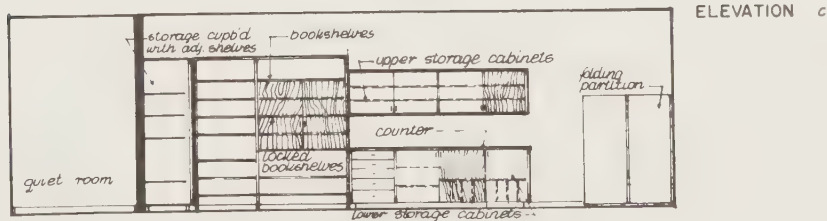 ELEVATION c
storage cupb'd
with adj. shelves
bookshelves
upper storage cabinets
folding
partition
counter
locked
bookshelves
quiet room
lower storage cabinets